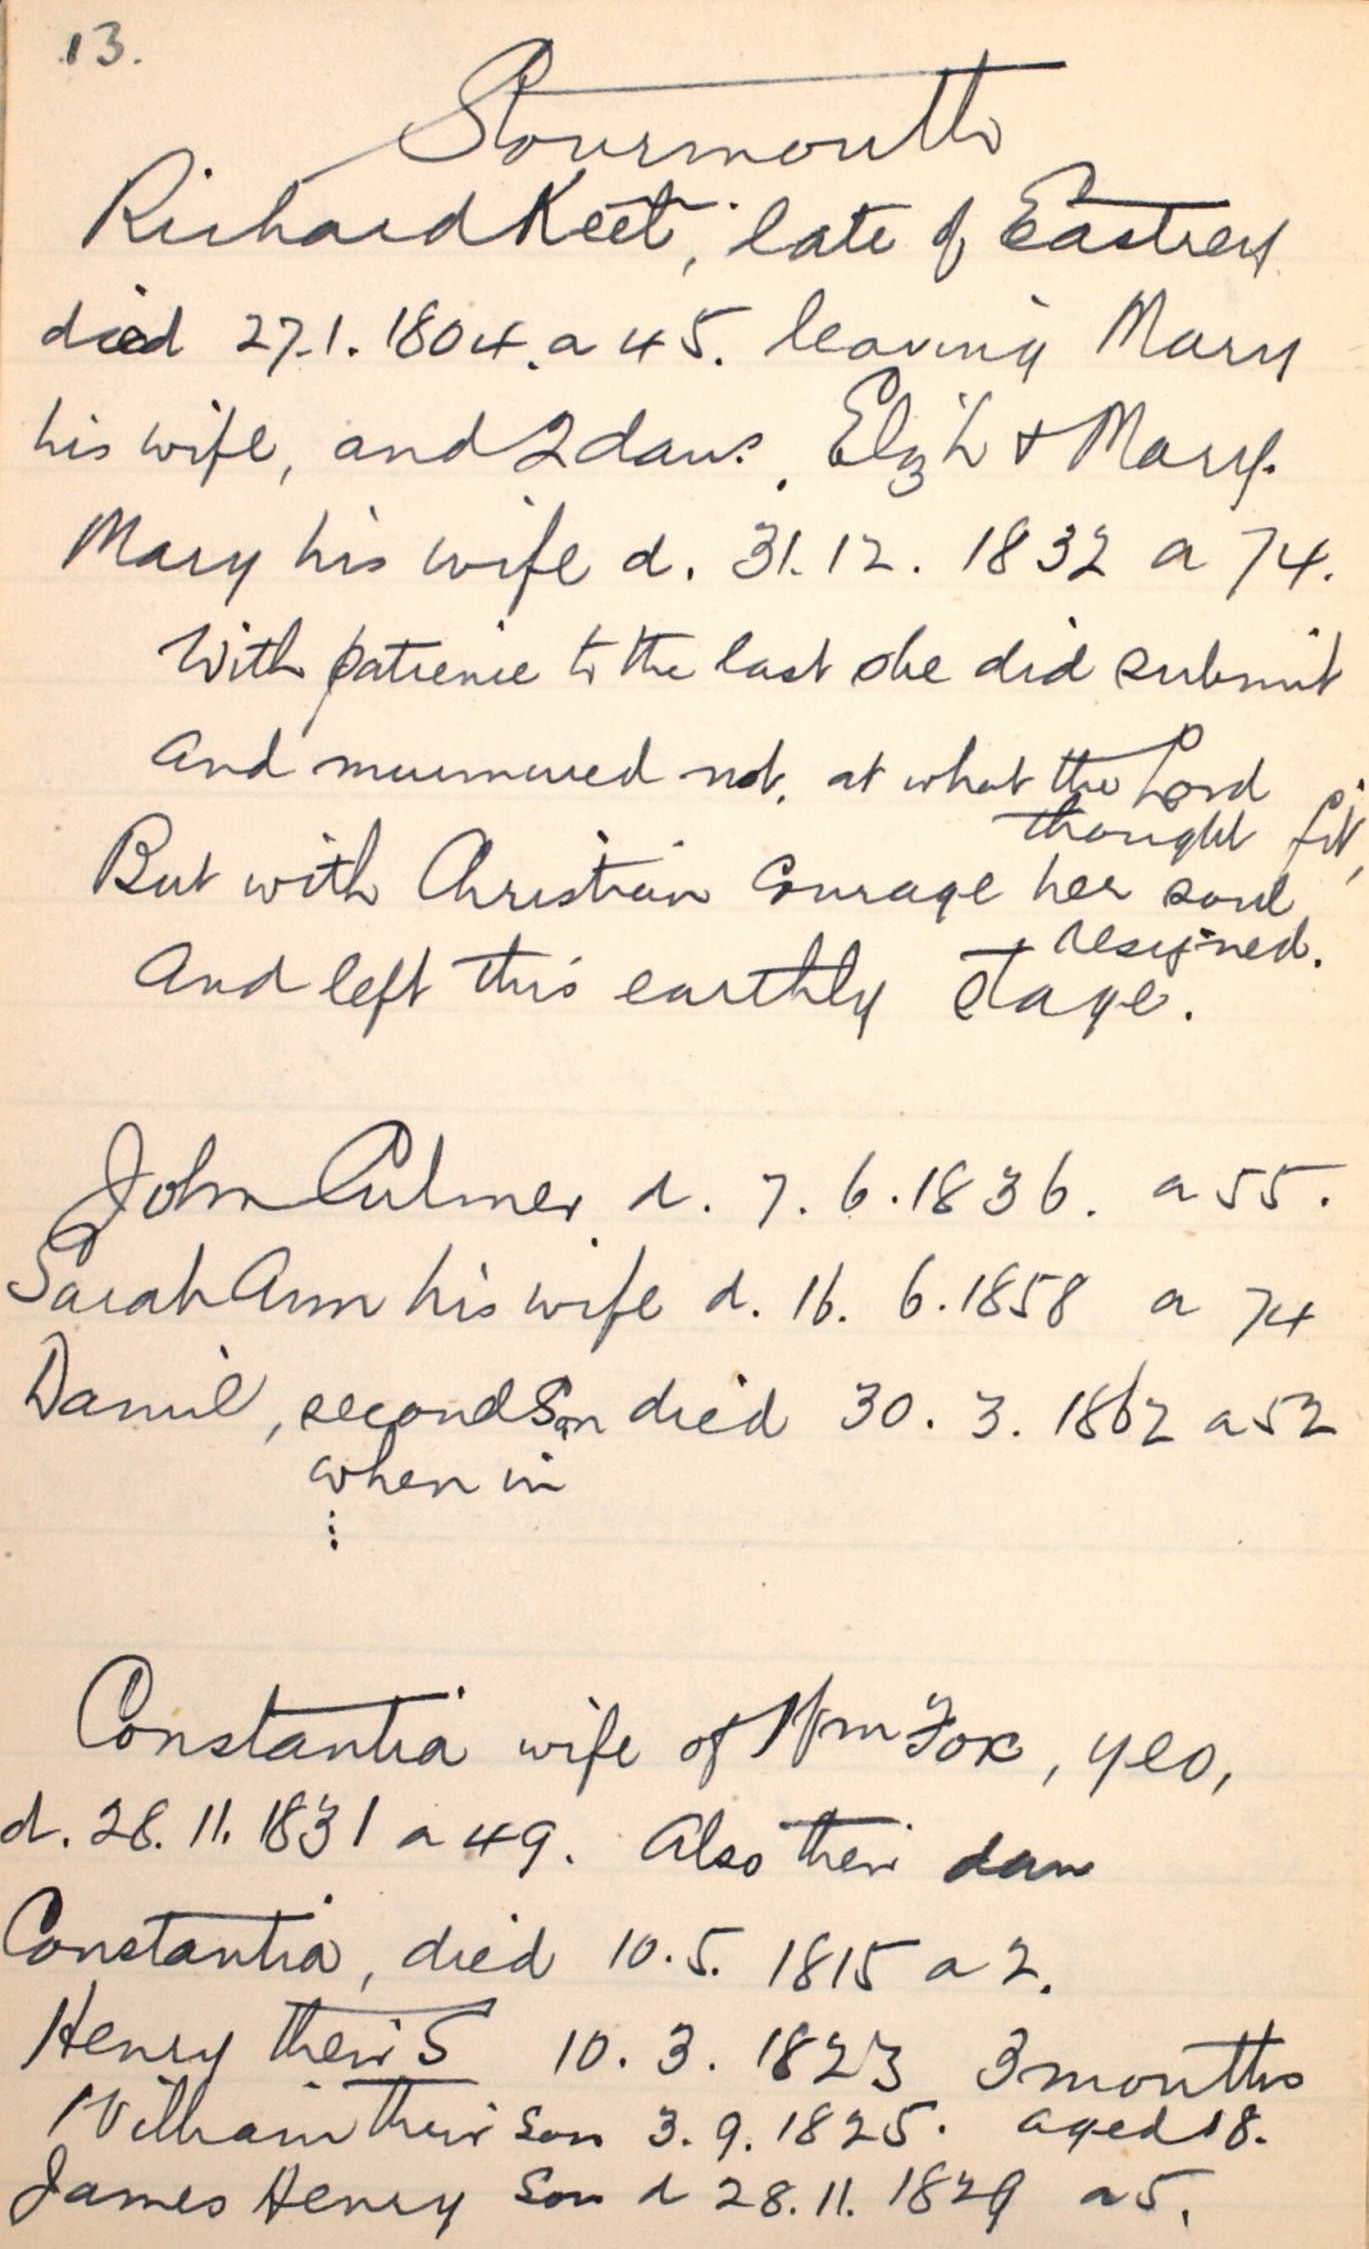 13.
Stourmouth
Richard Keet, late of Eastrey
died 27.1.1804. a 45. leaving Mary
his wife, and 2 daus. Elzh + Mary.
Mary his wife d. 31.12.1832 a 74.
With patience to the last she did submit
And murmured not, at what the Lord
thought fit,
But with Christian Courage her soul
resigned.
And left this earthly stage.
John Culmer d. 7.6.1836. a 55.
Sarah Ann his wife d. 16. 6.1858 a 74
Daniel, second Son died 30. 3. 1862 a 52
when in
⋮
Constantia wife of Wm Fox, yeo,
d. 28. 11. 1831 a 49. Also their dau
Constantia, died 10.5. 1815 a 2.
Henry their S 10. 3. 1823 3 months
William their son 3. 9. 1825. aged 18.
James Henry Son d 28.11. 1829 a 5.